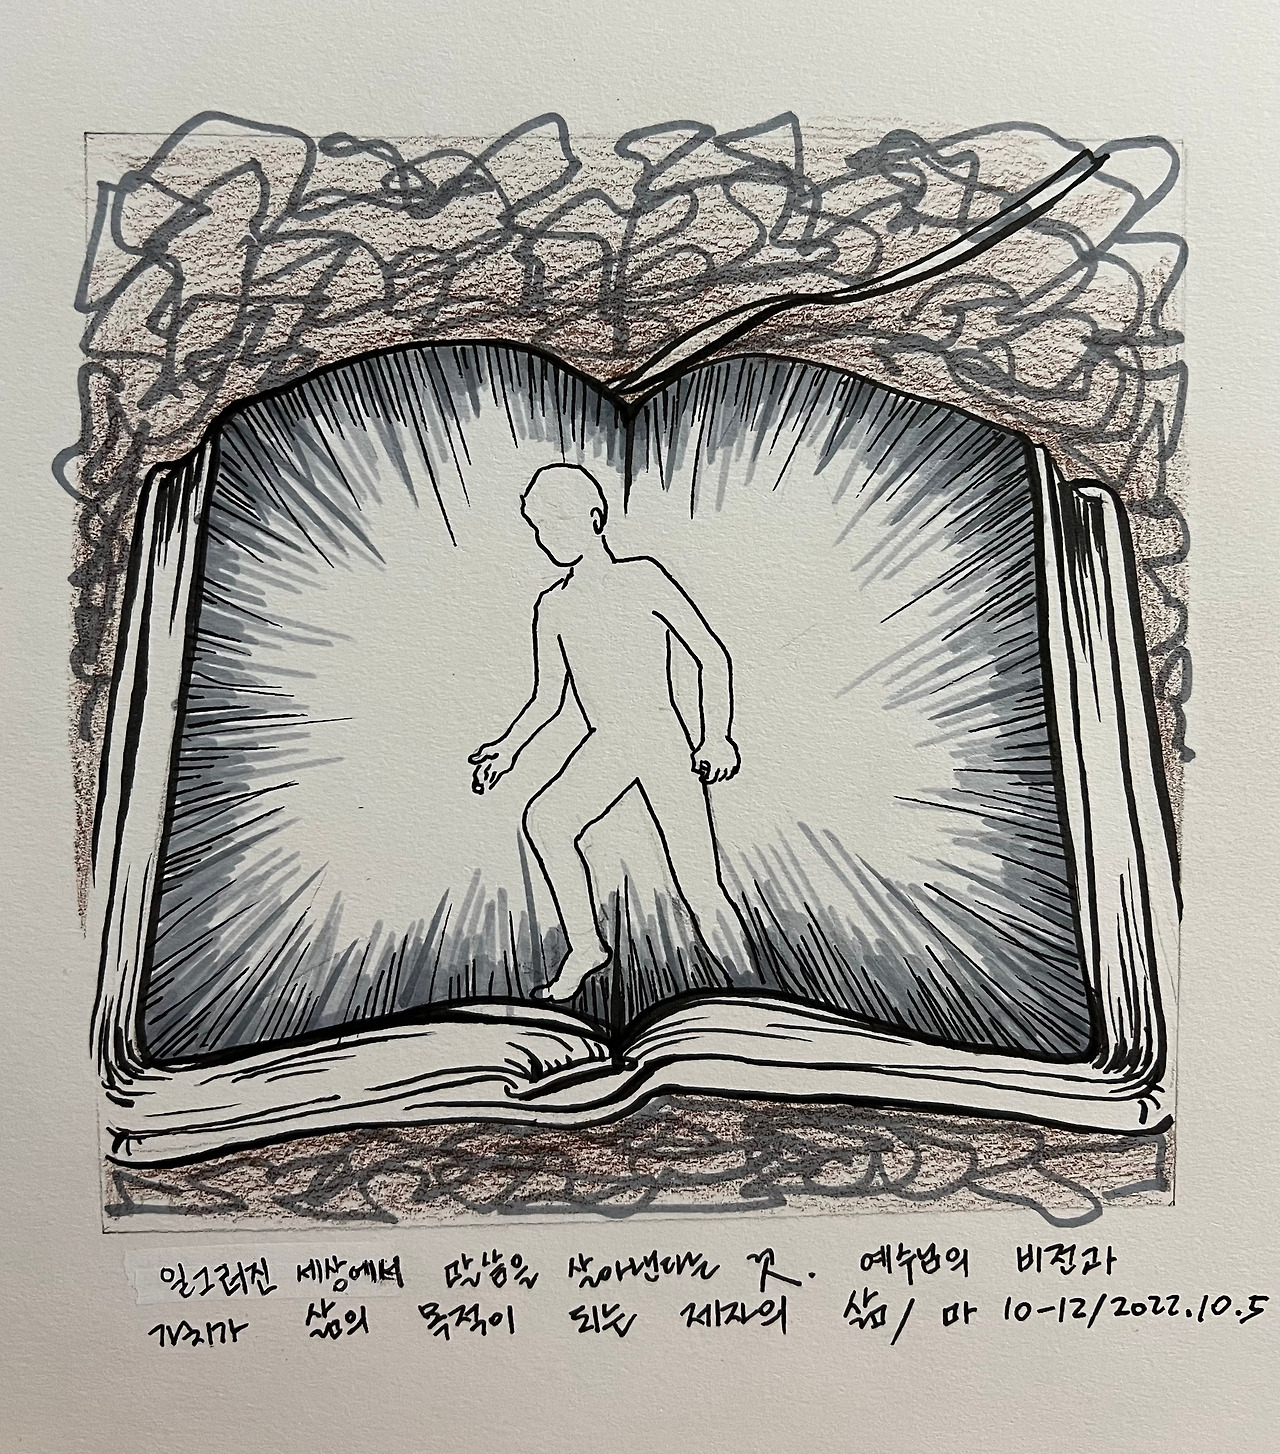 일그러진 세상에서 말씀을 살아낸다는 것. 예수님의 비전과
가치가 삶의 목적이 되는 제자의 삶/ 마 10-12/2022.10.5